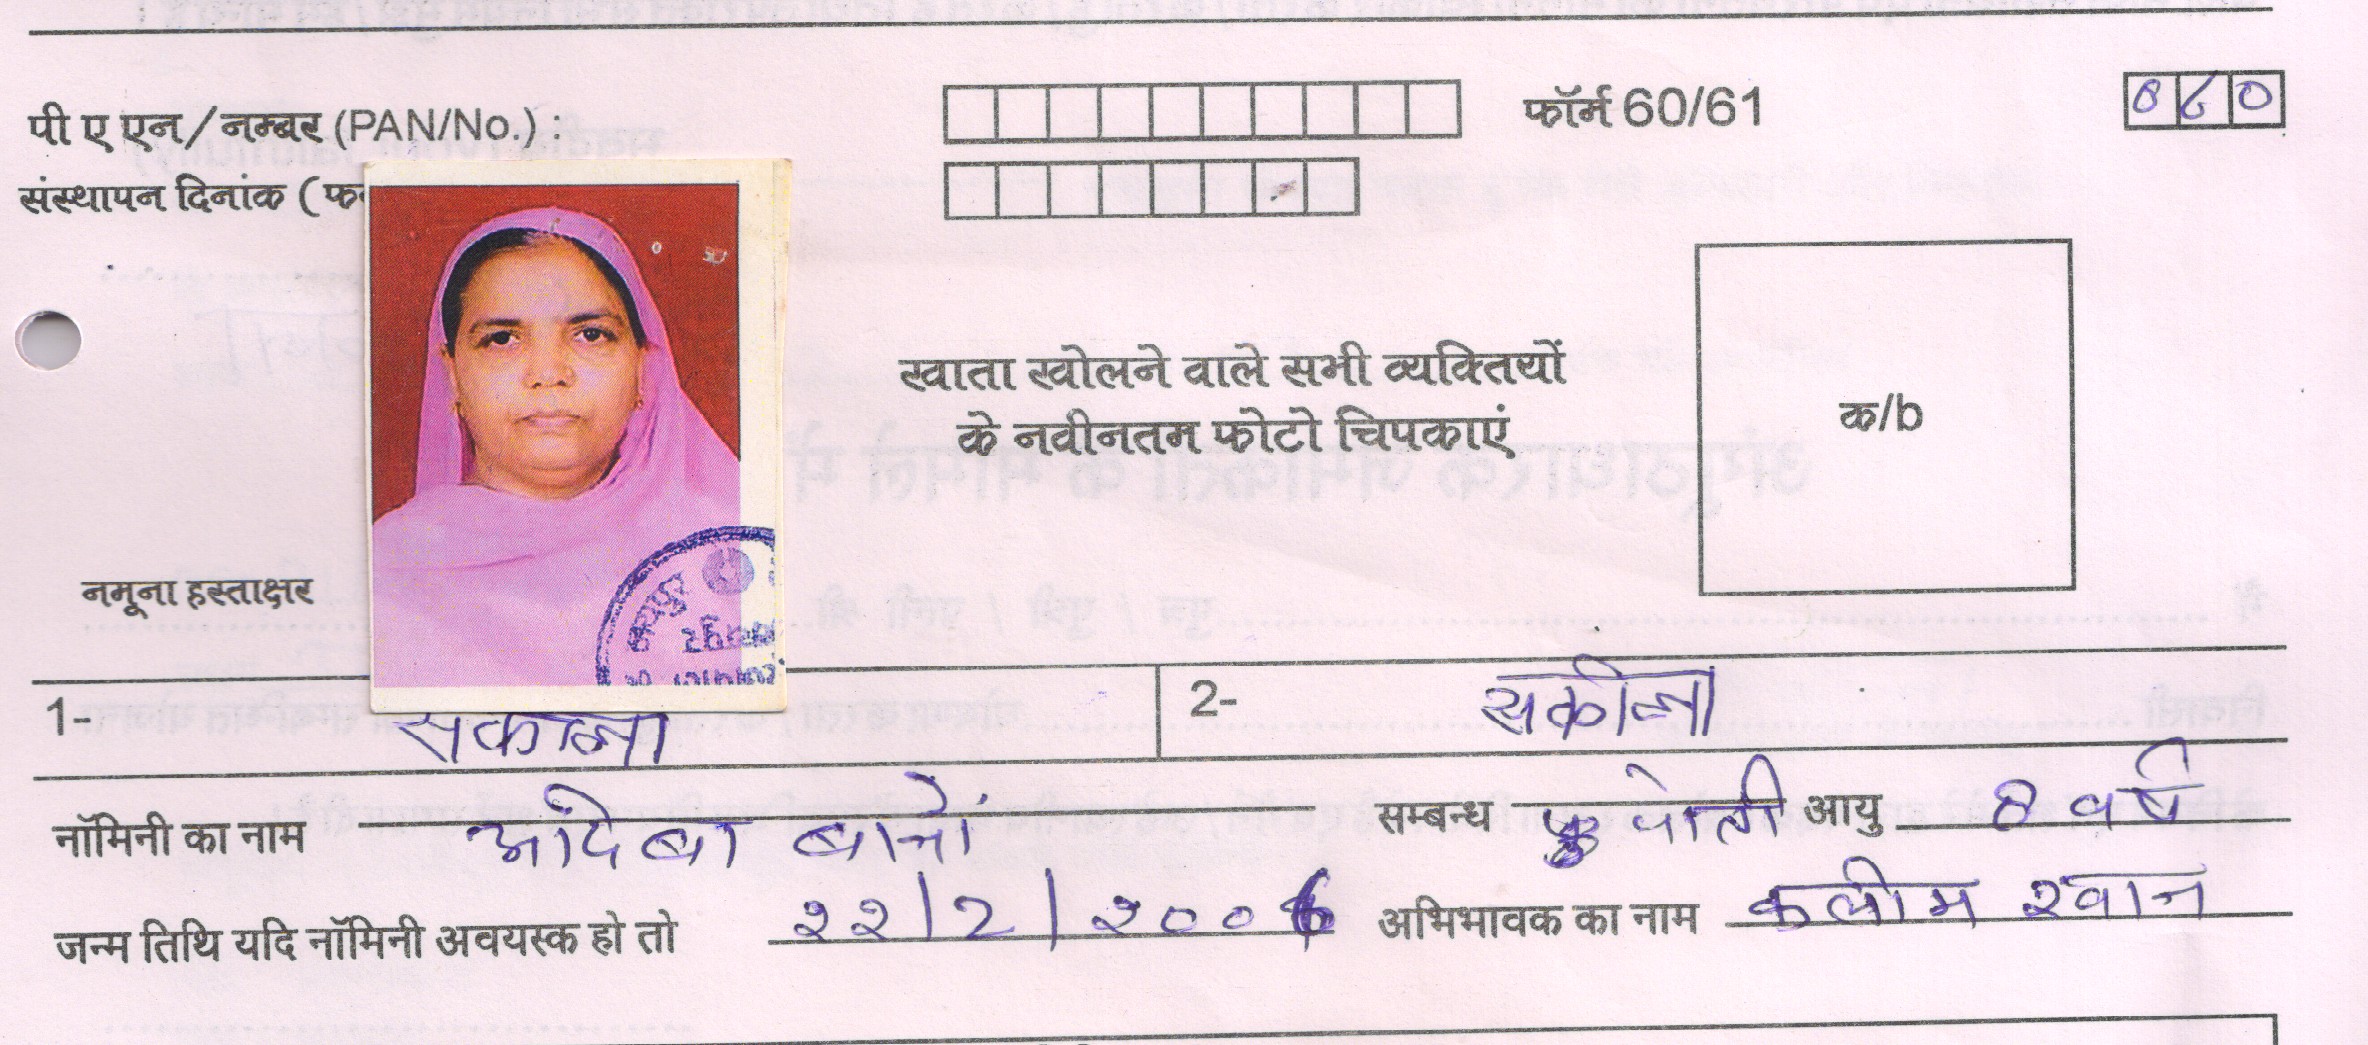 पी ए एन/नम्बर (PAN/No.) : फॉर्म 60/61
संस्थापन दिनांक (फ
खाता खोलने वाले सभी व्यक्तियों
के नवीनतम फोटो चिपकाएं
क/b
नमूना हस्ताक्षर
1- सकीना 2- सकीना
नॉमिनी का नाम बानों सम्बन्ध पोती आयु 8 वर्ष
जन्म तिथि यदि नॉमिनी अवयस्क हो तो २२/2/२००6 अभिभावक का नाम कलीम खान